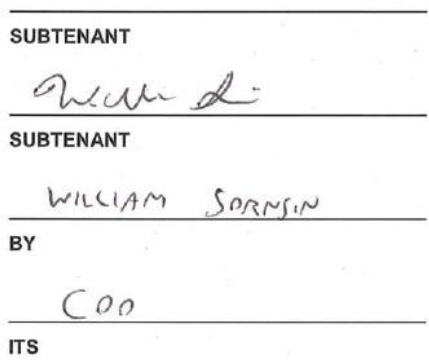 SUBTENANT
SUBTENANT
WILLIAM SORNSIN
BY
COO
ITS